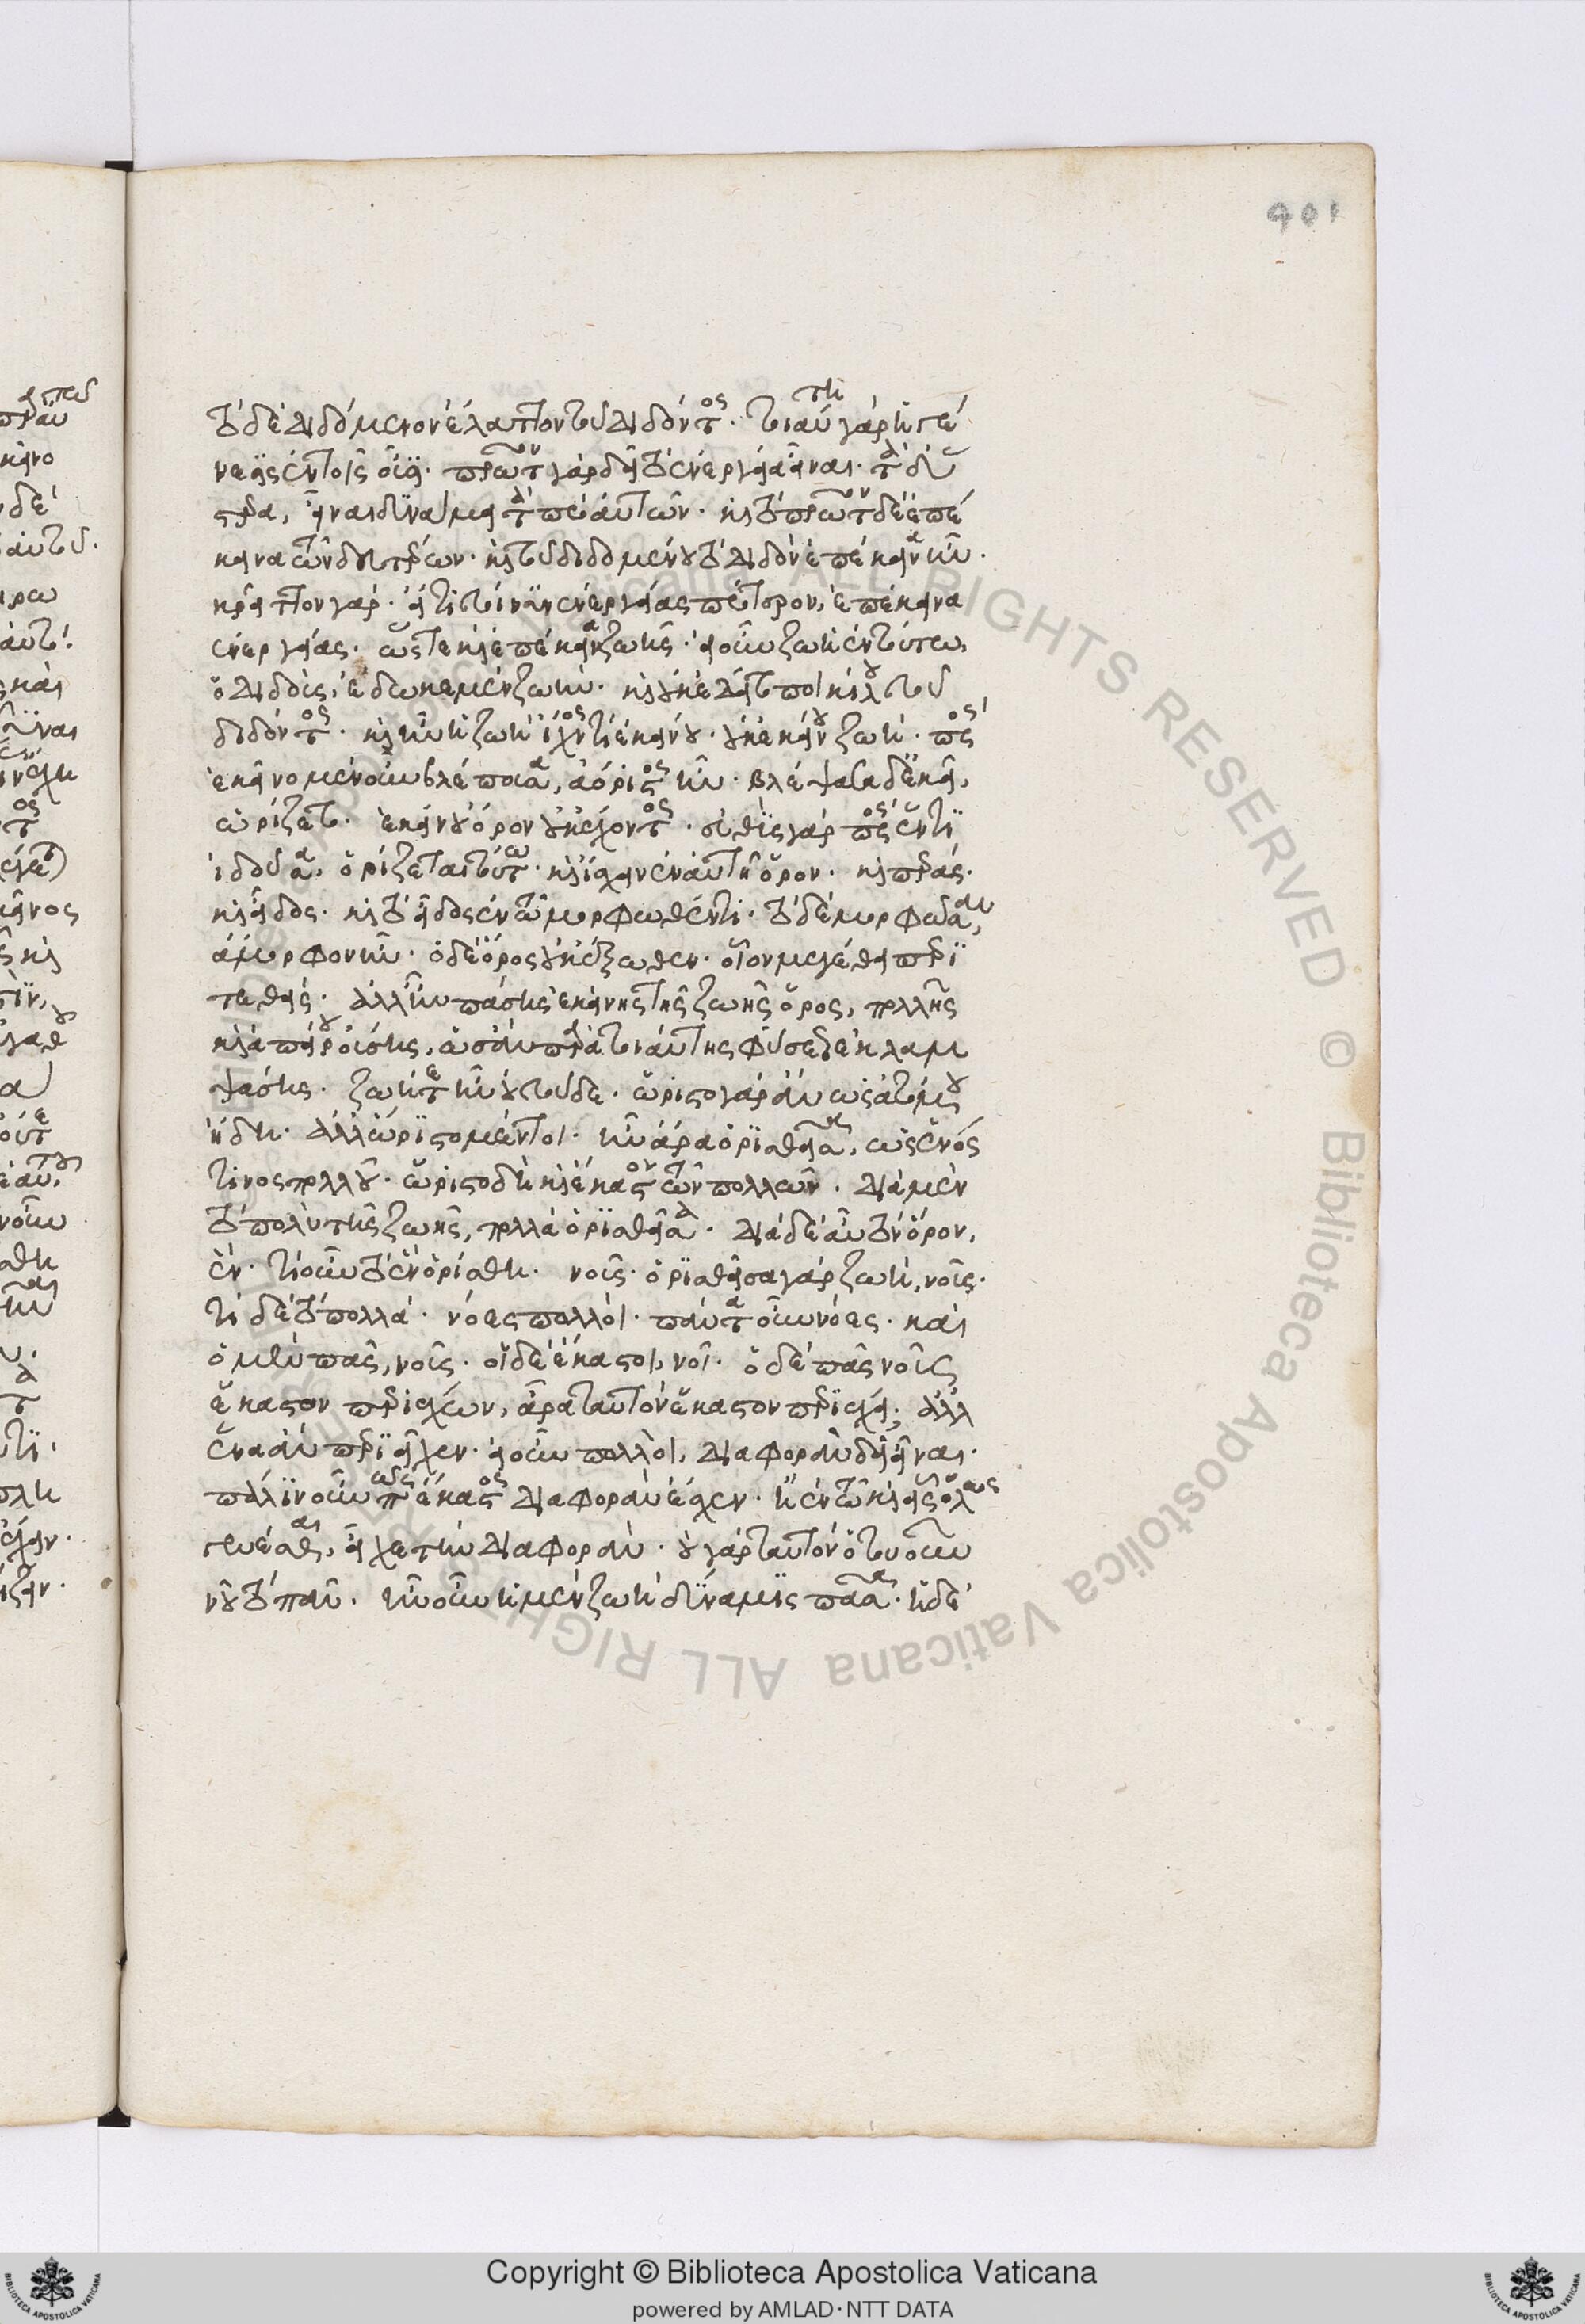 τὸ δὲ διδόμενον ἔλαττον τοῦ διδόντος. τοιαύτη γὰρ ἡ γέ
νεσις ἐν τοῖς οὖσι. πρῶτον γὰρ δεῖ τὸ ἐνεργείᾳ εἶναι. τὰ δ ὕ
στερα, εἶναι δυνάμει τὰ πρὸ αὐτῶν. καὶ τὸ πρῶτον δὲ ἐπέ
κεινα τῶν δευτέρων. καὶ τοῦ διδομένου τὸ διδὸν ἐπέκεινα ἦν.
κρεῖττον γάρ. εἴ τι τοίνυν ἐνεργείας πρότερον, ἐπέκεινα
ἐνεργείας. ὥστε καὶ ἐπέκεινα ζωῆς. εἰ οὖν ζωὴ ἐν τούτω,
ὁ διδοὺς, ἔδωκε μὲν ζωήν. καὶ οὐκ ἔδει τὸ ποικίλου τοῦ
διδόντος. καὶ ἦν ἡ ζωὴ ἴχνος τι ἐκείνου. οὐκ ἐκείνου ζωή. πρὸς
ἐκεῖνο μὲν οὖν βλέπουσα, ἀόριστος ἦν. βλέψασα δ ἐκεῖ,
ὡρίζετο. ἐκείνου ὅρον οὐκ ἔχοντος. εὐθὺς γὰρ πρὸς ἕν τι
ἰδοῦσα, ὁρίζεται τούτω. καὶ ἴσχει ἐν αὐτῇ ὅρον. καὶ πέρας.
καὶ εἶδος. καὶ τὸ εἶδος ἐν τῶ μορφωθέντι. τὸ δὲ μορφῶσαν,
ἄμορφον ἦν. ὁ δὲ ὅρος οὐκ ἔξωθεν. οἷον μεγέθει περι
τεθείς. ἀλλ ἦν πάσης ἐκείνης τῆς ζωῆς ὅρος, πολλῆς
καὶ ἀπείρου οὔσης, ὡς ἂν παρὰ τοιαύτης φύσεως ἐκλαμ
ψάσης. ζωή τε ἦν οὐ τοῦδε. ὥριστο γὰρ ἂν ὡς ἀτόμου
ἤδη. ἀλλ ὥριστο μέντοι. ἦν ἄρα ὁρισθεῖσα, ὡς ἑνός
τινος πολλοῦ. ὥριστο δὴ καὶ ἕκαστον τῶν πολλῶν. διὰ μὲν
τὸ πολὺ τῆς ζωῆς, πολλὰ ὁρισθεῖσα. διὰ δὲ αὖ τὸν ὅρον,
ἕν. τί οὖν τὸ ἓν ὁρίσθη. νοῦς. ὁρισθεῖσα γὰρ ζωὴ, νοῦς.
τί δὲ τὸ πολλά. νόες πολλοί. πάντα οὖν νόες. καὶ
ὁ μὲν πᾶς, νοῦς. οἱ δὲ ἕκαστοι, νοῖ. ὁ δὲ πᾶς νοῦς
ἕκαστον περιέχων, ἆρα ταυτὸν ἕκαστον περιέχει; ἀλλ
ἕνα ἂν περιεῖχεν. εἰ οὖν πολλοὶ, διαφορὰν δεῖ εἶναι.
πάλιν οὖν πῶς ἕκαστος διαφορὰν ἔσχεν. ἢ ἐν τῶ καὶ εἷς ὅλως
γενέσθαι, εἶχε τὴν διαφοράν. οὐ γὰρ ταυτὸν ὁτουοῦν
νοῦ τὸ πᾶν. ἦν οὖν ἡ μὲν ζωὴ δύναμις πᾶσα. ἡ δὲ